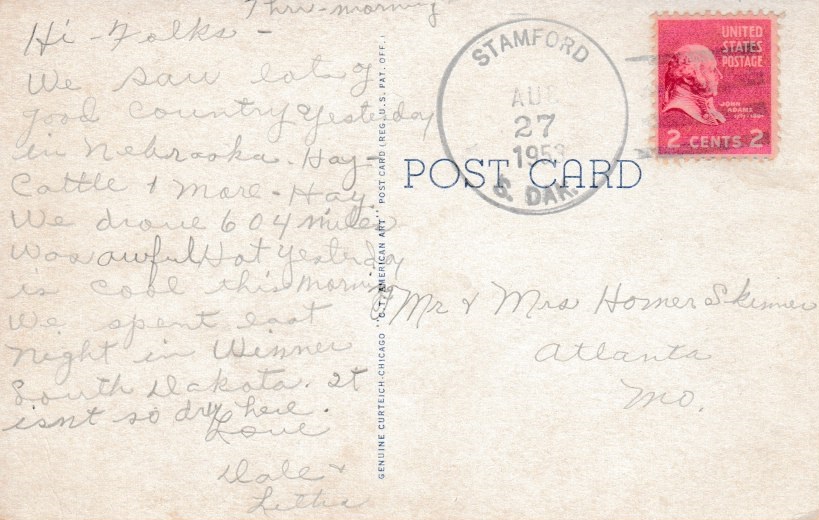 Thurs-morning
Hi-Folks-
We saw lots of
good country yesterday
in Nebraska. Hay-
Cattle & more-Hay.
We drove 604 miles
Was awful Hot yesterday
is cool this morning
We spent last
night in Winner
South Dakota. It
isnt so dry here.
Love
Dale &
Lettie
GENUINE CURTEICH-CHICAGO "C.T. AMERICAN ART" POST CARD (REG. U.S. PAT. OFF.)
POST CARD
STAMFORD
AUG
27
1953
S. DAK.
UNITED
STATES
POSTAGE
JOHN
ADAMS
2 CENTS 2
Mr & Mrs Homer Skinner
Atlanta
Mo.